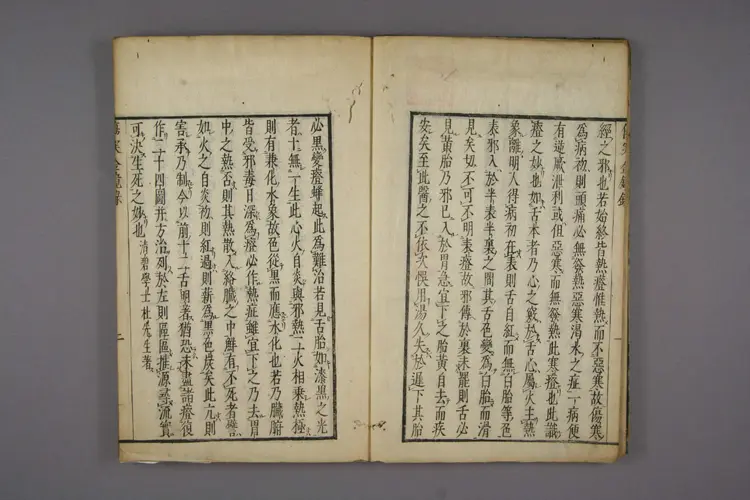 經之邪也若始終皆熱證惟熱而不惡寒故傷寒
爲病初則頭痛必無發熱惡寒渴水之症一病便
有逆厥泄利或但惡寒而無發熱此寒證也此識
證之妙也如舌本者乃心之竅於舌心屬火主熱
象離明人得病初在表則舌自紅而無白胎等色
表邪入於半表半裏之間其舌色變爲白胎而滑
見矣切不可不明表證故邪傳於裏未罷則舌必
見黃胎乃邪已入於胃急宜下之胎黃自去而疾
安矣至此醫之不依次悞用湯久失於遲下其胎
必黑變證蜂起此爲難治若見舌胎如漆黑之光
者十無一生此心火自炎與邪熱二火相乘熱極
則有兼化水象故色從黑而應水化也若乃臟腑
皆受邪毒日深爲證必作熱症雖宜下之乃去胃
中之熱否則其熱散入絡臟之中鮮有不死者譬
如火之自炎初則紅過則薪爲黑色炭矣此亢則
害承乃制今以前十二舌明著猶恐未盡諸證復
作二十四圖并方治列於左則區區推源尋流實
可決生死之妙也
清碧學士杜先生著